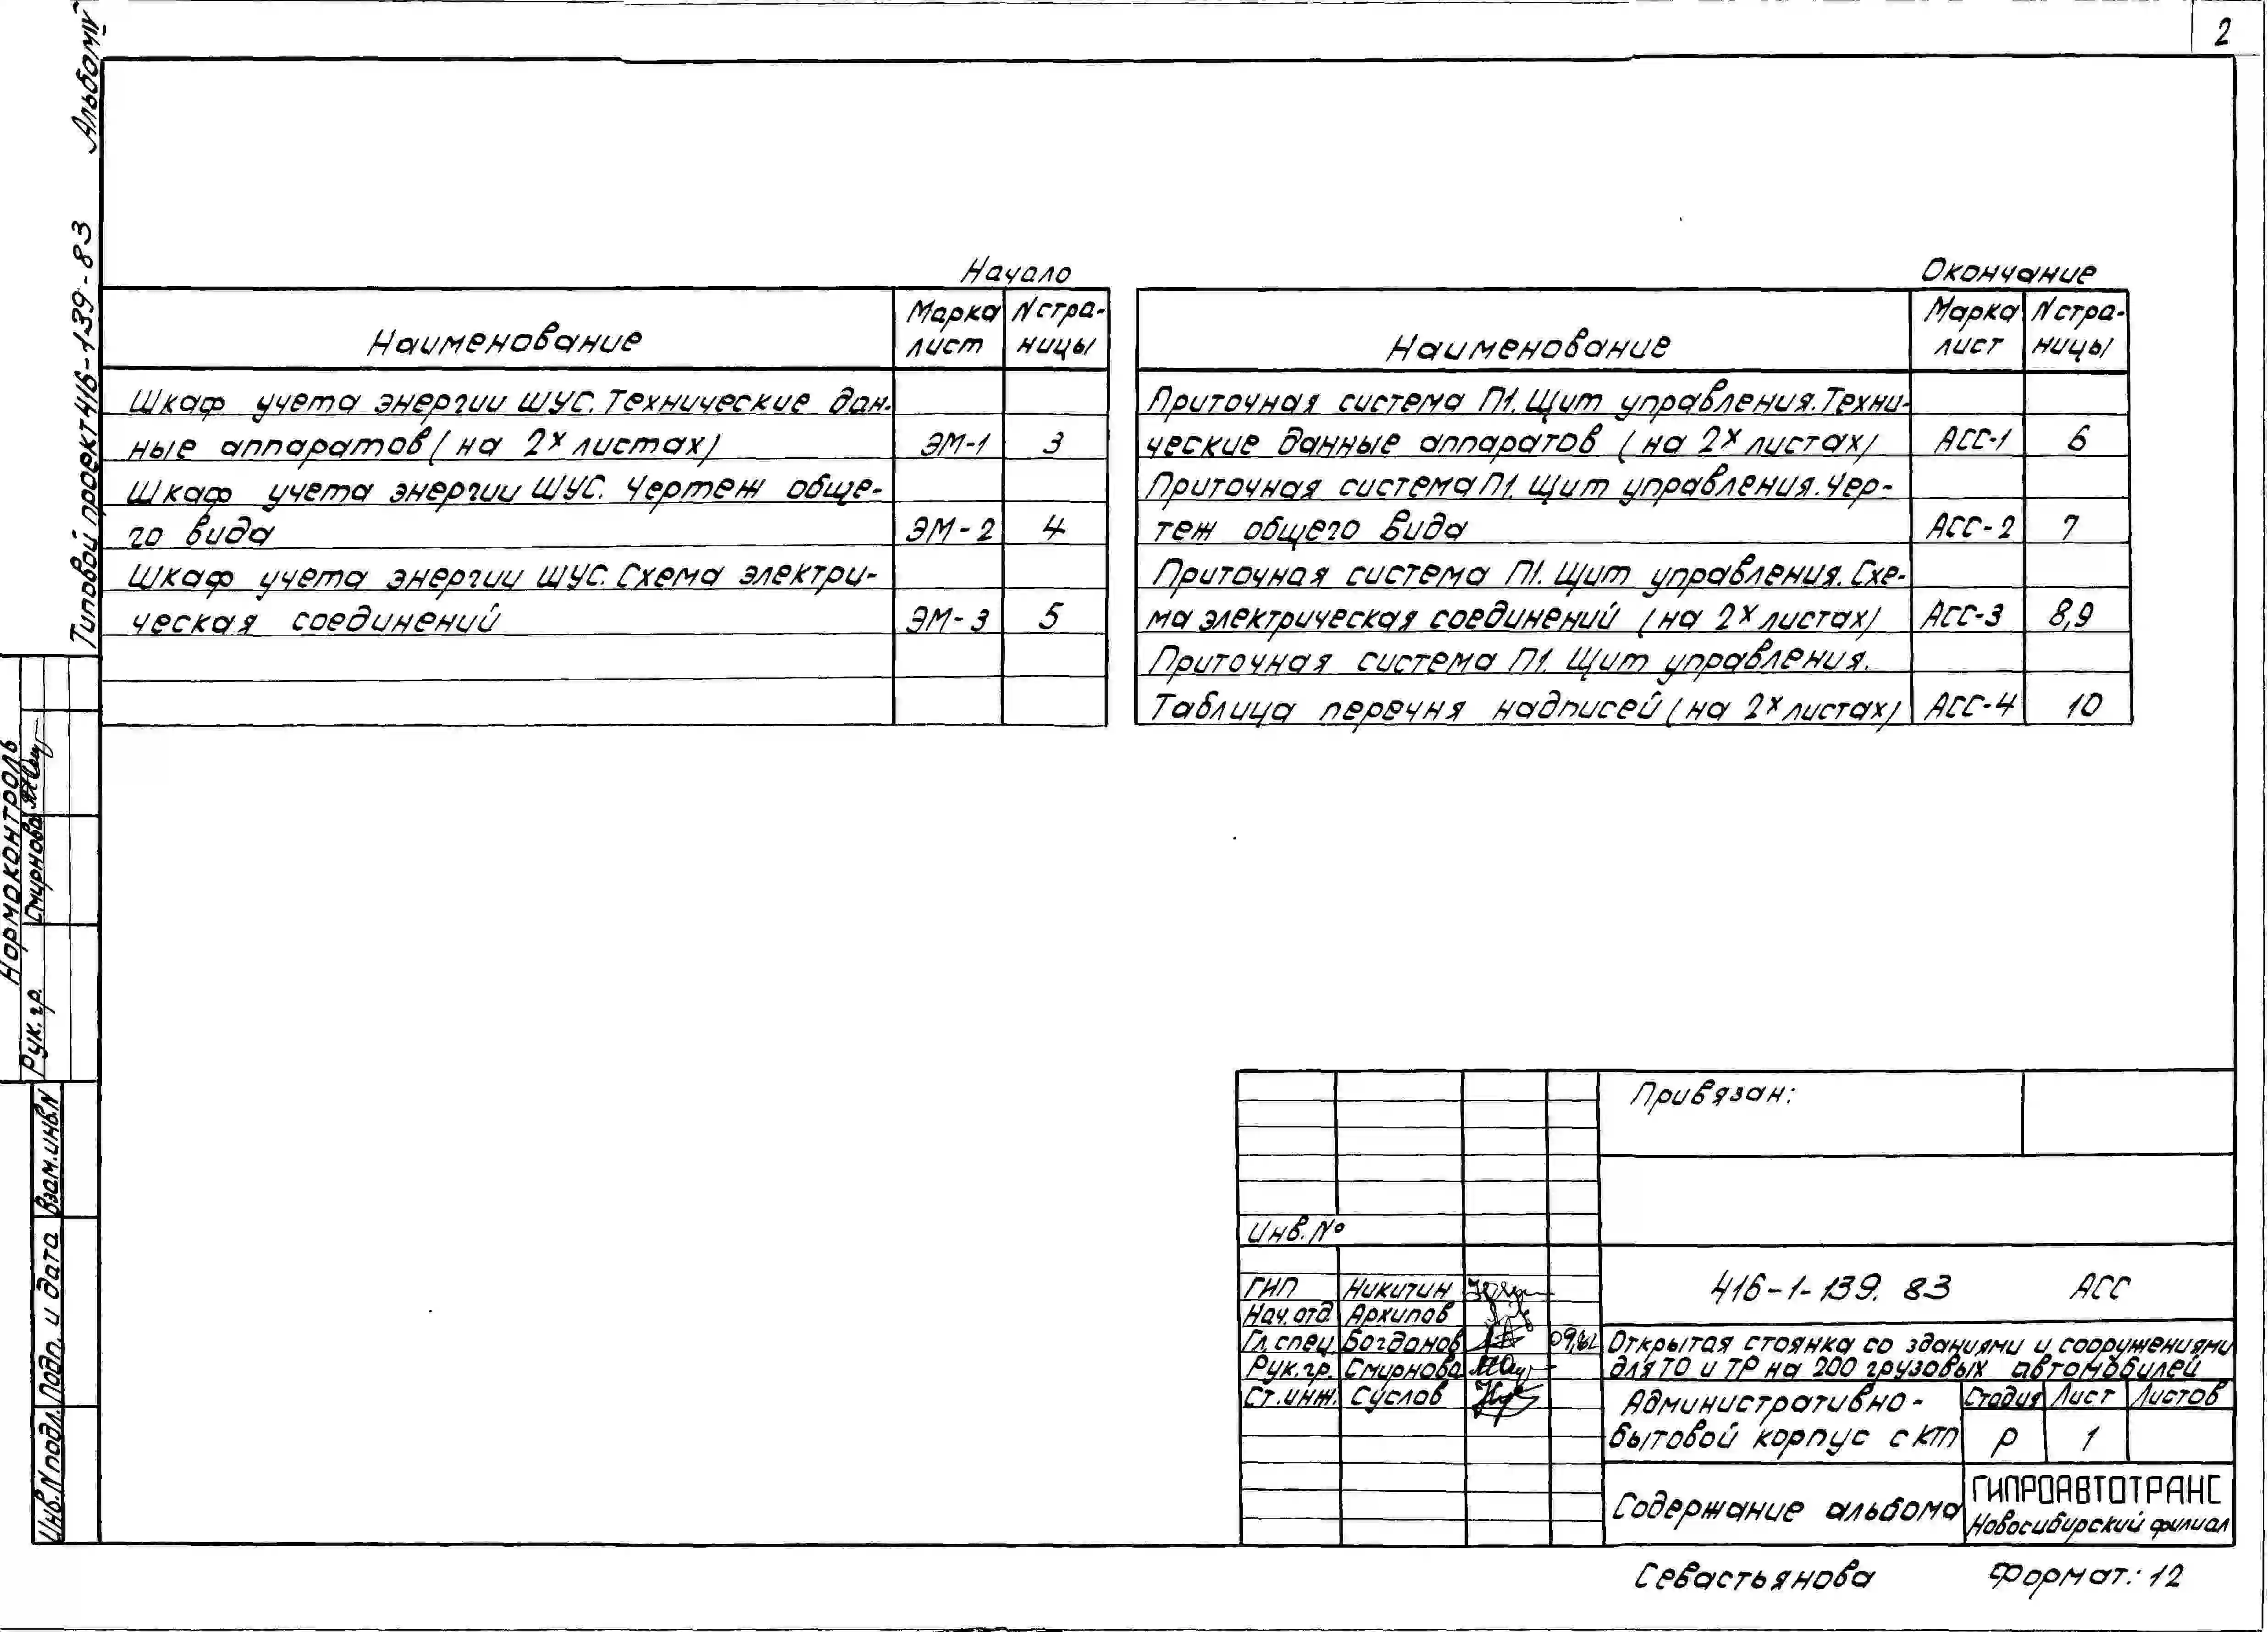 2
Альбом IV
Типовой проект 416-1-139-83
Начало
Наименование
Марка лист
N стра-
ницы
Шкаф учета энергии ШУС. Технические дан-
ные аппаратов (на 2х листах) ЭМ-1 3
Шкаф учета энергии ШУС. Чертеж обще-
го вида ЭМ-2 4
Шкаф учета энергии ШУС. Схема электри-
ческая соединений ЭМ-3 5
Окончание
Наименование
Марка лист
N стра-
ницы
Приточная система П1. Щит управления. Техни-
ческие данные аппаратов (на 2х листах) АСС-1 6
Приточная система П1. Щит управления. Чер-
теж общего вида АСС-2 7
Приточная система П1. Щит управления. Схе-
ма электрическая соединений (на 2х листах) АСС-3 8,9
Приточная система П1. Щит управления.
Таблица перечня надписей (на 2х листах) АСС-4 10
Нормоконтроль
Рук. гр. Смирнова
Взам. инв. N
Подп. и дата
Инв. N подл.
Привязан:
Инв. №
416-1-139. 83 АСС
ГИП Никитин
Нач. отд. Архипов
Гл. спец. Богданов
Рук. гр. Смирнова
Ст. инж. Суслов
Открытая стоянка со зданиями и сооружениями
для ТО и ТР на 200 грузовых автомобилей
Административно-
бытовой корпус с КТП
Стадия Лист Листов
Р 1
Содержание альбома
ГИПРОАВТОТРАНС
Новосибирский филиал
Севастьянова Формат: 12